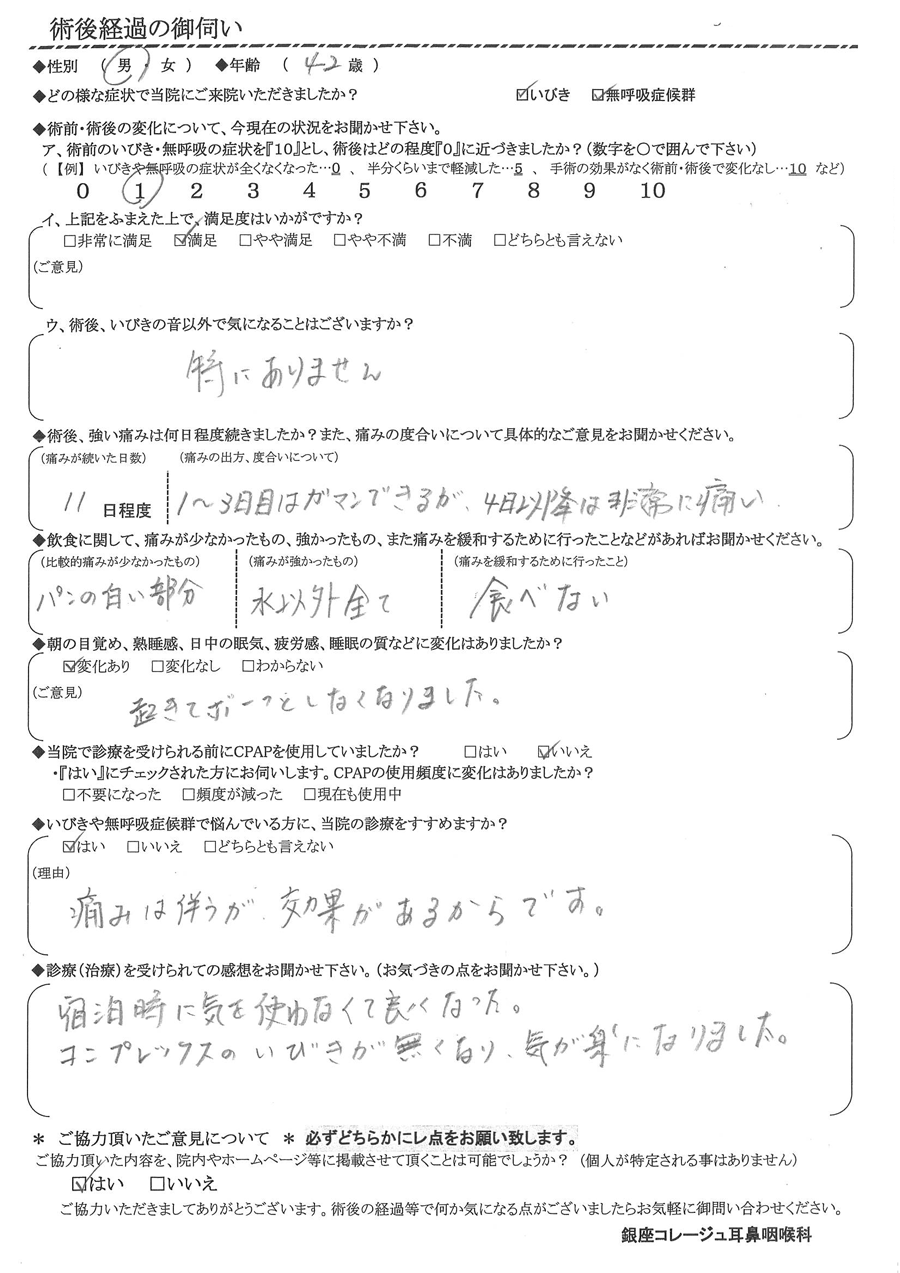 術後経過の御伺い
◆性別 ( 男 ・ 女 ) ◆年齢 ( 42 歳 )
◆どの様な症状で当院にご来院いただきましたか? ☑いびき ☑無呼吸症候群
◆術前・術後の変化について、今現在の状況をお聞かせ下さい。
ア、術前のいびき・無呼吸の症状を『10』とし、術後はどの程度『0』に近づきましたか?(数字を○で囲んで下さい)
(【例】 いびきや無呼吸の症状が全くなくなった…0 、 半分くらいまで軽減した…5 、 手術の効果がなく術前・術後で変化なし…10 など)
0 1 2 3 4 5 6 7 8 9 10
イ、上記をふまえた上で、満足度はいかがですか?
□非常に満足 ☑満足 □やや満足 □やや不満 □不満 □どちらとも言えない
(ご意見)
ウ、術後、いびきの音以外で気になることはございますか?
特にありません
◆術後、強い痛みは何日程度続きましたか?また、痛みの度合いについて具体的なご意見をお聞かせください。
(痛みが続いた日数) (痛みの出方、度合いについて)
11 日程度 1～3日目はガマンできるが、4日以降は非常に痛い
◆飲食に関して、痛みが少なかったもの、強かったもの、また痛みを緩和するために行ったことなどがあればお聞かせください。
(比較的痛みが少なかったもの) (痛みが強かったもの) (痛みを緩和するために行ったこと)
パンの白い部分 水以外全て 食べない
◆朝の目覚め、熟睡感、日中の眠気、疲労感、睡眠の質などに変化はありましたか?
☑変化あり □変化なし □わからない
(ご意見)
起きてボーっとしなくなりました。
◆当院で診療を受けられる前にCPAPを使用していましたか? □はい ☑いいえ
・『はい』にチェックされた方にお伺いします。CPAPの使用頻度に変化はありましたか?
□不要になった □頻度が減った □現在も使用中
◆いびきや無呼吸症候群で悩んでいる方に、当院の診療をすすめますか?
☑はい □いいえ □どちらとも言えない
(理由)
痛みは伴うが、効果があるからです。
◆診療(治療)を受けられての感想をお聞かせ下さい。(お気づきの点をお聞かせ下さい。)
宿泊時に気を使わなくて良くなった。
コンプレックスのいびきが無くなり、気が楽になりました。
＊ ご協力頂いたご意見について ＊ 必ずどちらかにレ点をお願い致します。
ご協力頂いた内容を、院内やホームページ等に掲載させて頂くことは可能でしょうか? (個人が特定される事はありません)
☑はい □いいえ
ご協力いただきましてありがとうございます。術後の経過等で何か気になる点がございましたらお気軽に御問い合わせください。
銀座コレージュ耳鼻咽喉科